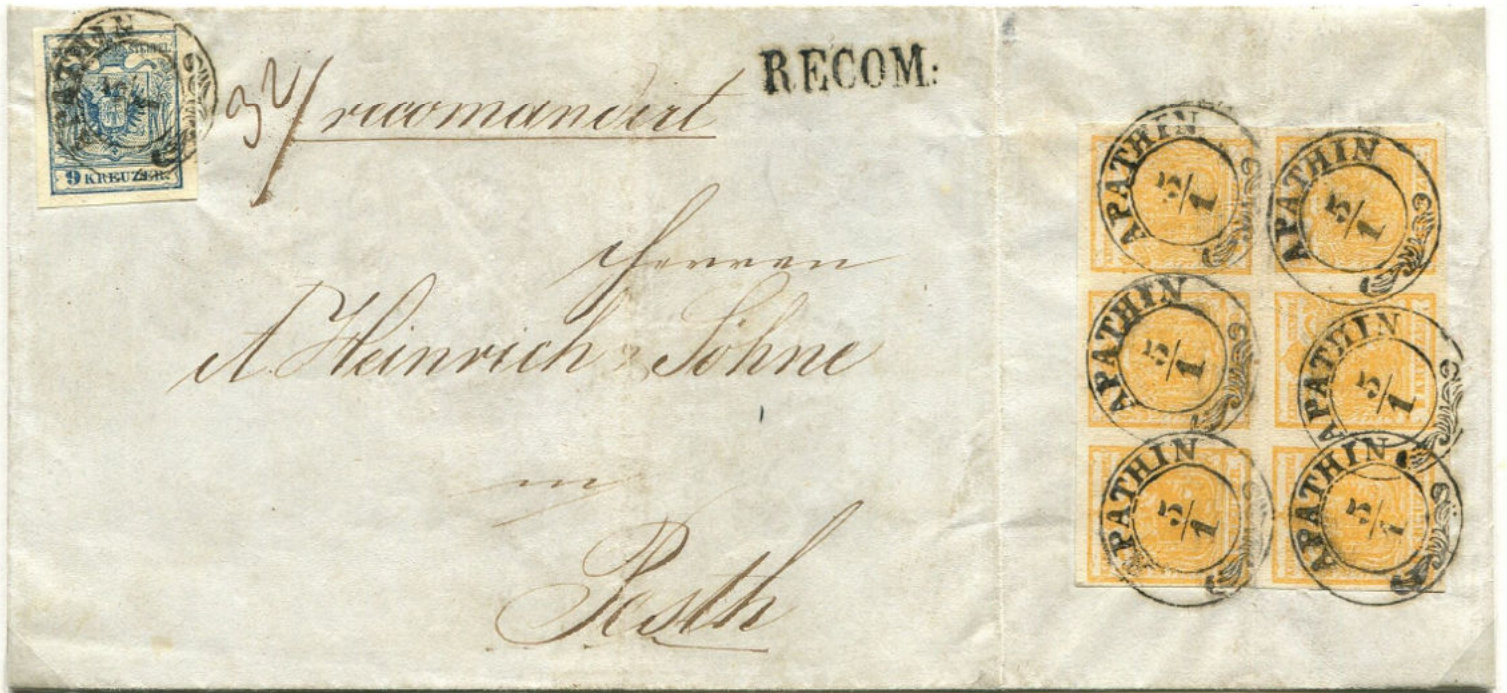 APATHIN
9 KREUZER.
recomandirt
RECOM:
Herren
A. Heinrich Söhne
in
Pesth
APATHIN
5/1
APATHIN
5/1
APATHIN
5/1
APATHIN
5/1
APATHIN
5/1
APATHIN
5/1